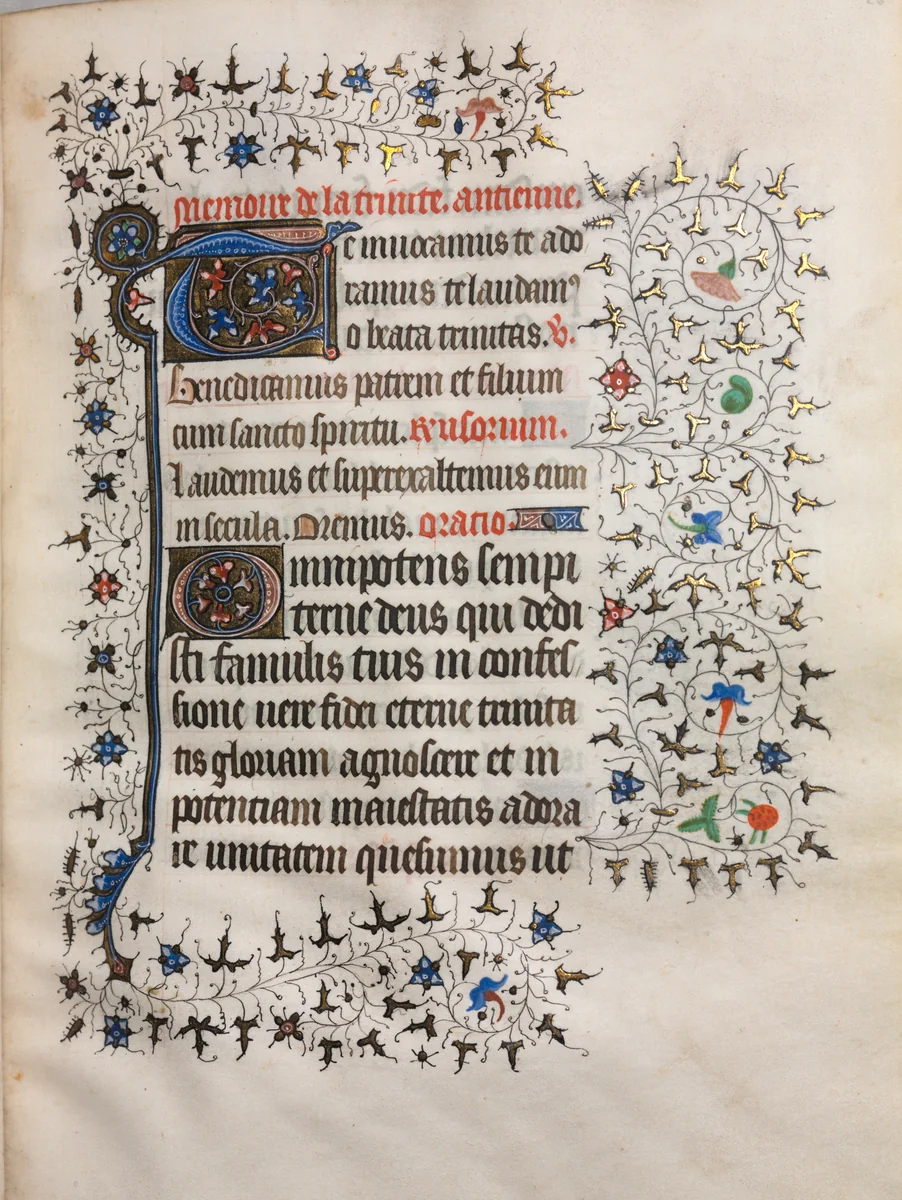 Memoire de la trinite. antienne.
Te inuocamus te ado
ramus te laudamꝰ
o beata trinitas. V.
Benedicamus patrem et filium
cum sancto spiritu. Reusorium.
Laudemus et superexaltemus eum
in secula. Oremus. oratio.
Omnipotens sempi
terne deus qui dedi
sti famulis tuis in confes
sione uere fidei eterne trinita
tis gloriam agnoscere et in
potentiam maiestatis adora
re unitatem quesumus ut